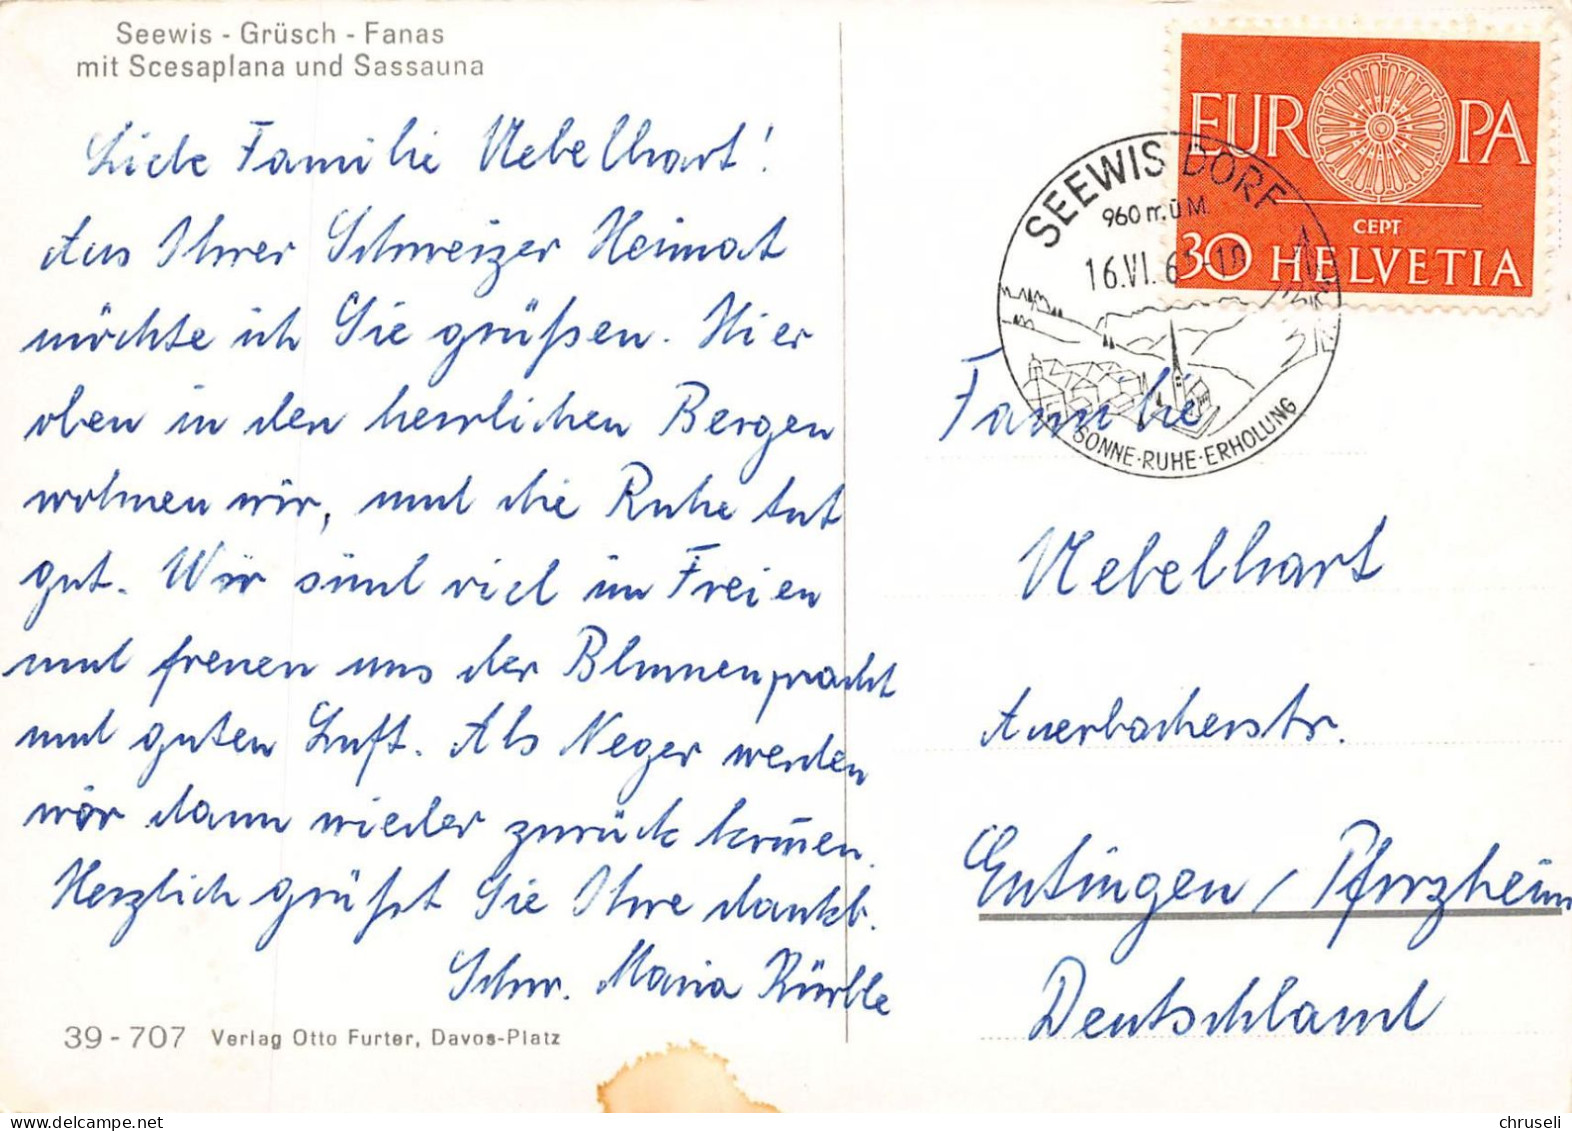 Seewis - Grüsch - Fanas
mit Scesaplana und Sassauna
Liebe Familie Uebelhart!
Aus Ihrer Schweizer Heimat
möchte ich Sie grüßen. Hier
oben in den herrlichen Bergen
wohnen wir, und die Ruhe tut
gut. Wir sind viel im Freien
und freuen uns der Blumenpracht
und guten Luft. Als Neger werden
wir dann wieder zurück kom̄en.
Herzlich grüßt Sie Ihre dankb.
Schw. Maria
39-707 Verlag Otto Furter, Davos-Platz
EUROPA
CEPT
30 HELVETIA
SEEWIS DORF
960 m.ü M.
16.VI.
SONNE·RUHE·ERHOLUNG
Familie
Uebelhart
Auerbacherstr.
Eutingen / Pforzheim
Deutschland
chruseli